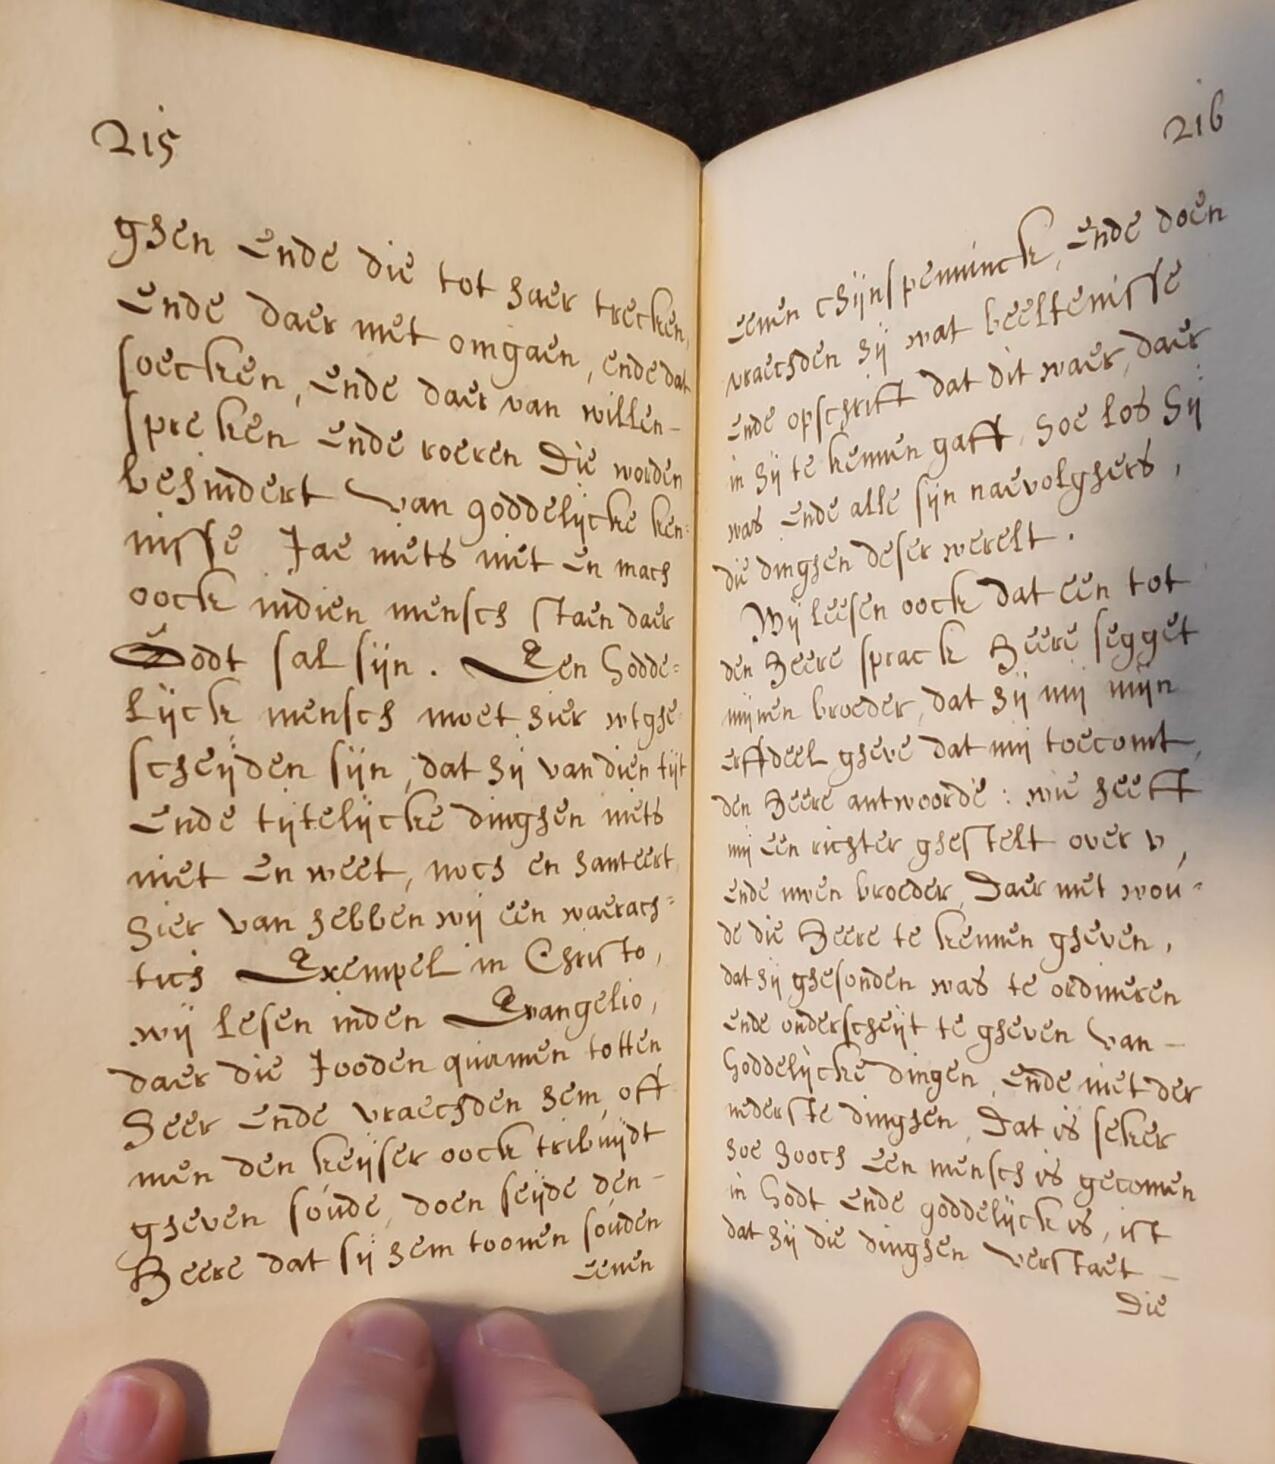 215
ghen ende die tot haer trecken,
ende daer met omgaen, ende dat
soecken, ende daer van willen-
spreken ende roeren Die worden
behindert van goddelijcke ken-
nisse Jae niets niet en mach
oock indien mensch staen daer
Godt sal sijn. Een Godde=
lijck mensch moet hier wtghe
scheijden sijn, dat hij van dien tijt
ende tijtelijcke dinghen niets
niet en weet, noch en hanteert,
Hier van hebben wij een waerach=
tich Exempel in Christo,
wij lesen inden Evangelio,
daer die Jooden quamen totten
Heer ende vraechden hem, off
men den keijser oock tribuijdt
gheven soude, doen seijde den-
Heere dat sij hem toonen souden
eenen
216
eenen chijnspenninck, ende doen
vraechden hij wat beeltenisse
ende opschrift dat dit waer, daer
in hij te kennen gaff, hoe los hij
was ende alle sijn naevolghers,
die dinghen deser werelt.
Wij leesen oock dat een tot
den Heere sprack Heere segget
mijnen broeder, dat hij mij mijn
erffdeel gheve dat mij toecomt,
den Heere antwoorde: wie heeft
mij een richter ghestelt over v,
ende uwen broeder, Daer met wou-
de die Heere te kennen gheven,
dat hij ghesonden was te ordineren
ende onderscheijt te gheven van-
Goddelijcke dingen, ende niet der
nederste dinghen, Dat is seker
hoe hooch een mensch is gecomen
in Godt ende goddelijck is, ist
dat hij die dinghen verstaet-
Die